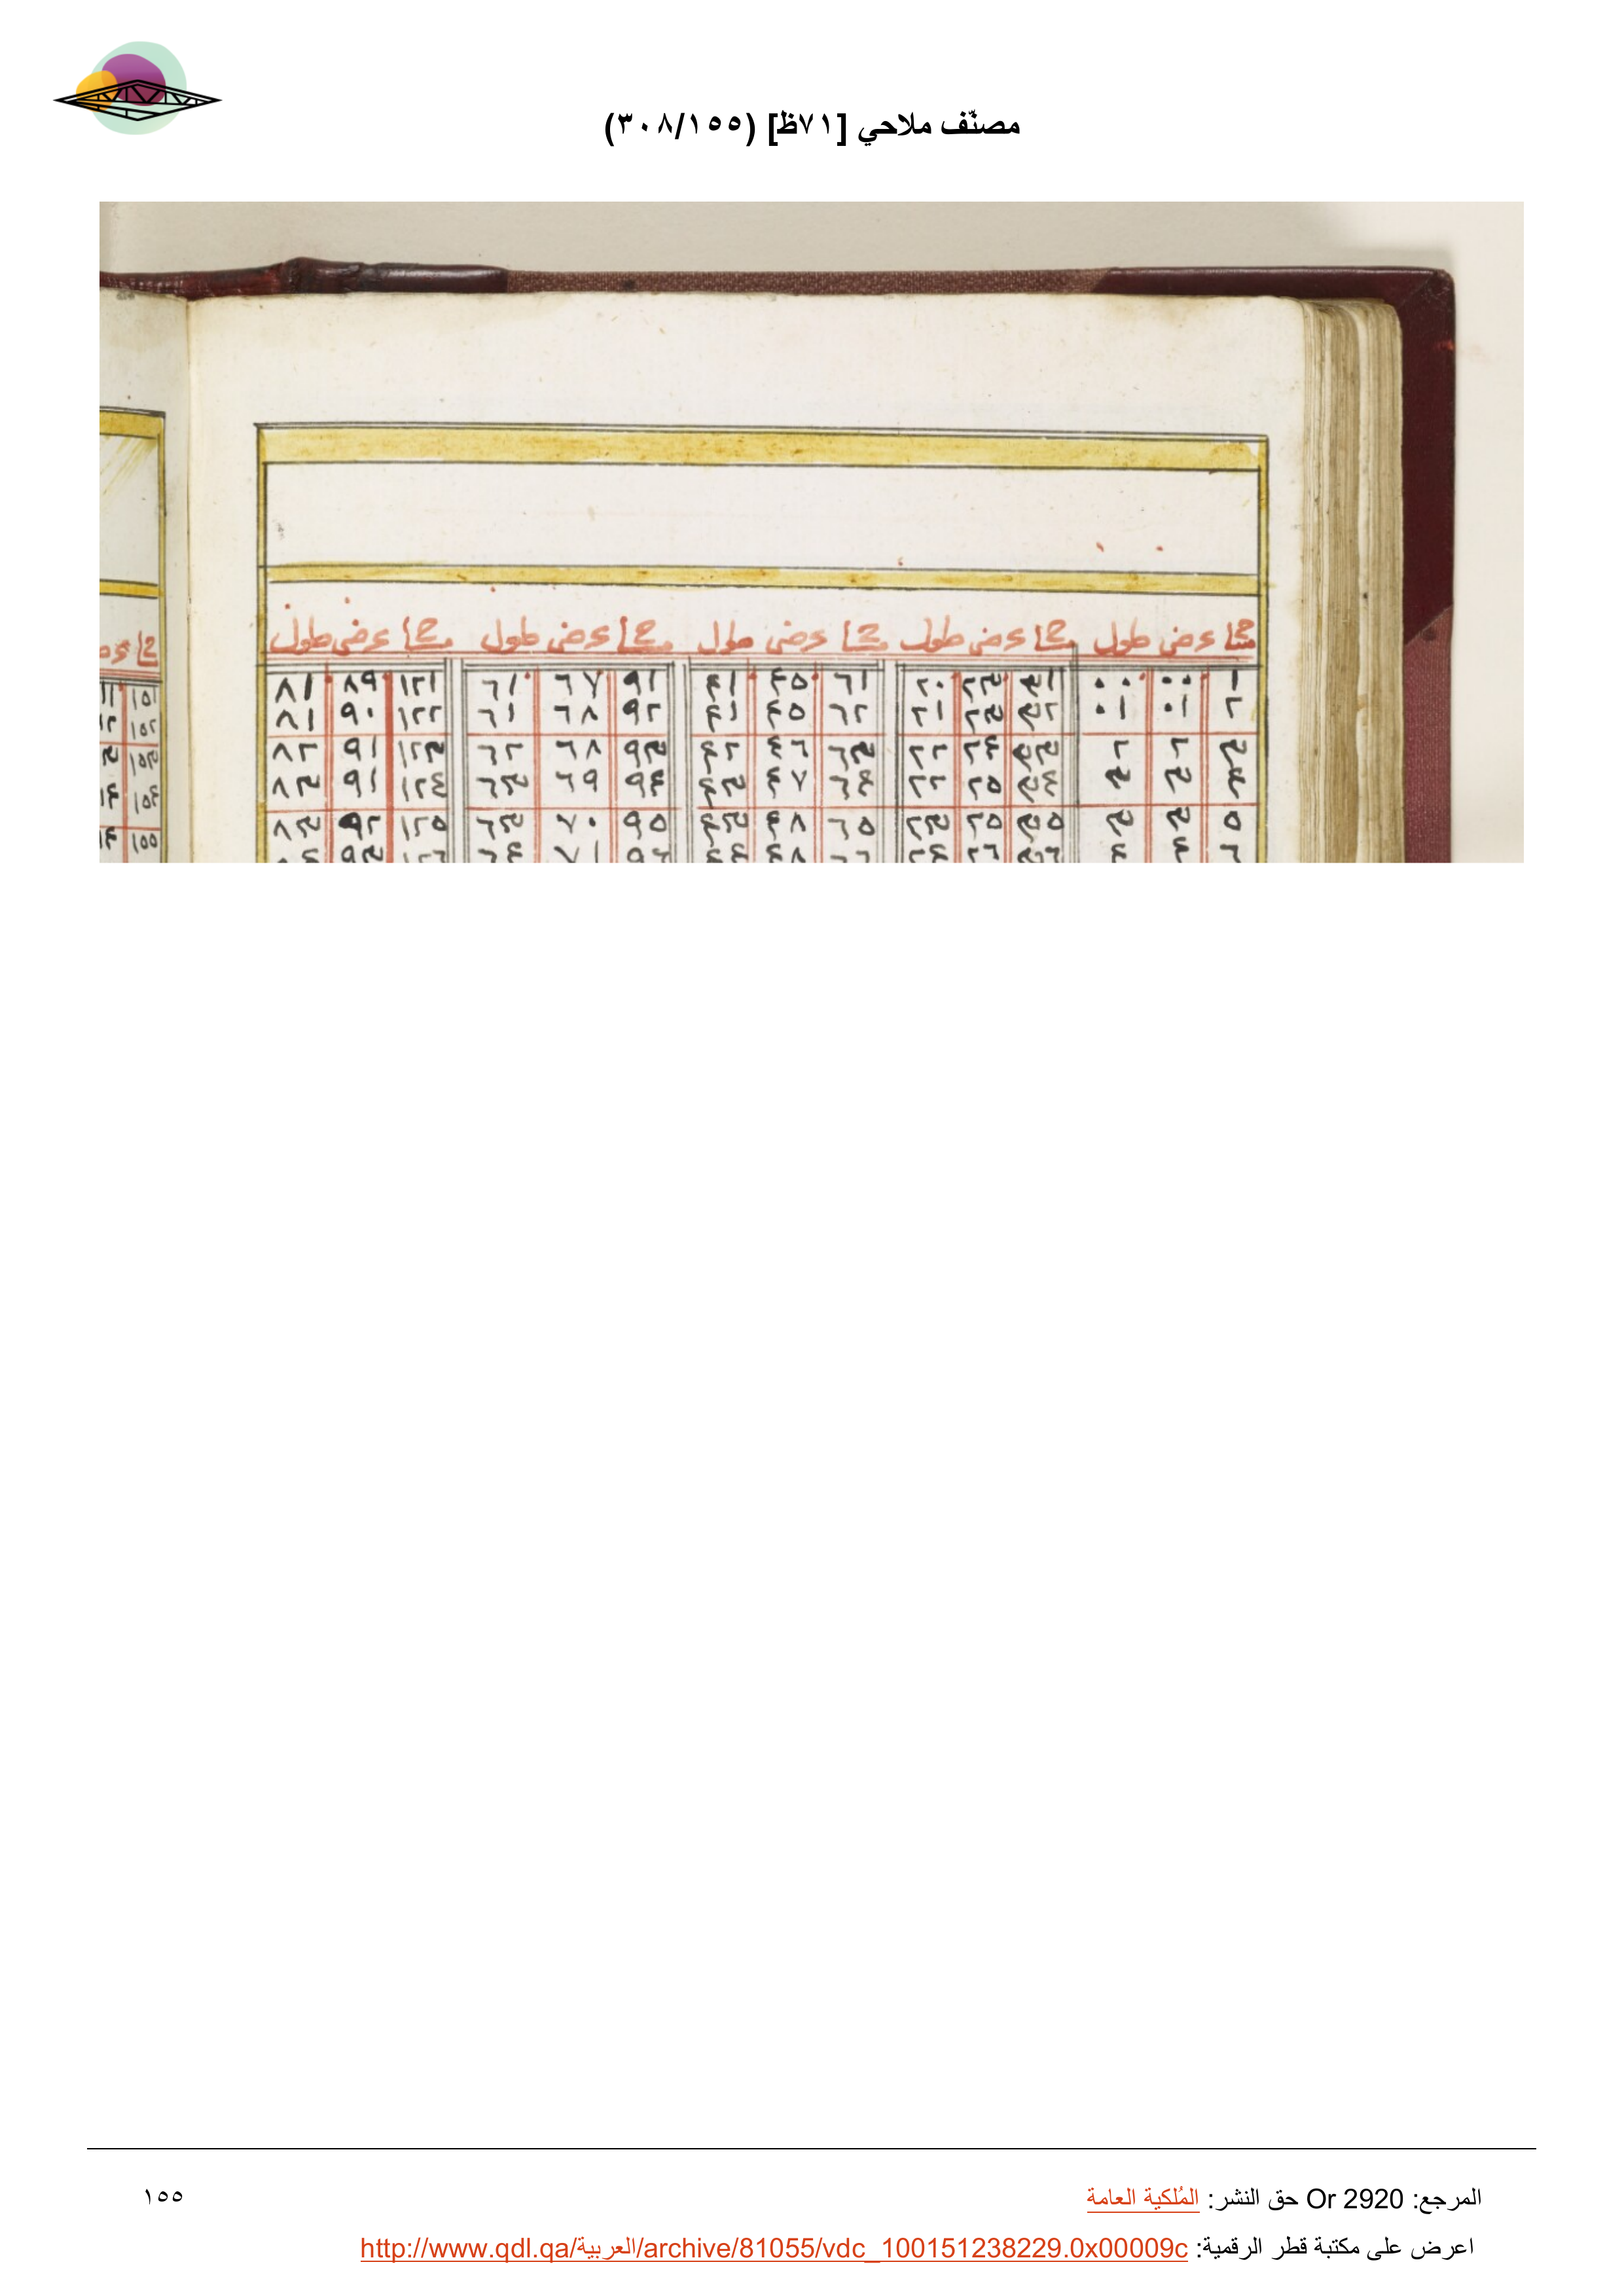 مصنّف ملاحي [٧١ظ] (٣٠٨/١٥٥)
عرض طول عرض طول عرض طول عرض طول عرض طول
١ ٠٠ ٠٠ ٣١ ٢٣ ٢٠ ٦١ ٤٥ ٤١ ٩١ ٦٧ ٦١ ١٢١ ٨٩ ٨١
٢ ٠١ ٠١ ٣٢ ٢٣ ٢١ ٦٢ ٤٥ ٤١ ٩٢ ٦٨ ٦١ ١٢٢ ٩٠ ٨١
٣ ٢ ٢ ٣٣ ٢٤ ٢٢ ٦٣ ٤٦ ٤٢ ٩٣ ٦٨ ٦٢ ١٢٣ ٩١ ٨٢
٤ ٣ ٣ ٣٤ ٢٥ ٢٢ ٦٤ ٤٧ ٤٣ ٩٤ ٦٩ ٦٣ ١٢٤ ٩١ ٨٣
٥ ٣ ٣ ٣٥ ٢٥ ٢٣ ٦٥ ٤٨ ٤٣ ٩٥ ٧٠ ٦٣ ١٢٥ ٩٢ ٨٣
١٥١
١٥٢
١٥٣
١٥٤
١٥٥
المرجع: Or 2920 حق النشر: المُلكية العامة
اعرض على مكتبة قطر الرقمية: http://www.qdl.qa/العربية/archive/81055/vdc_100151238229.0x00009c
١٥٥